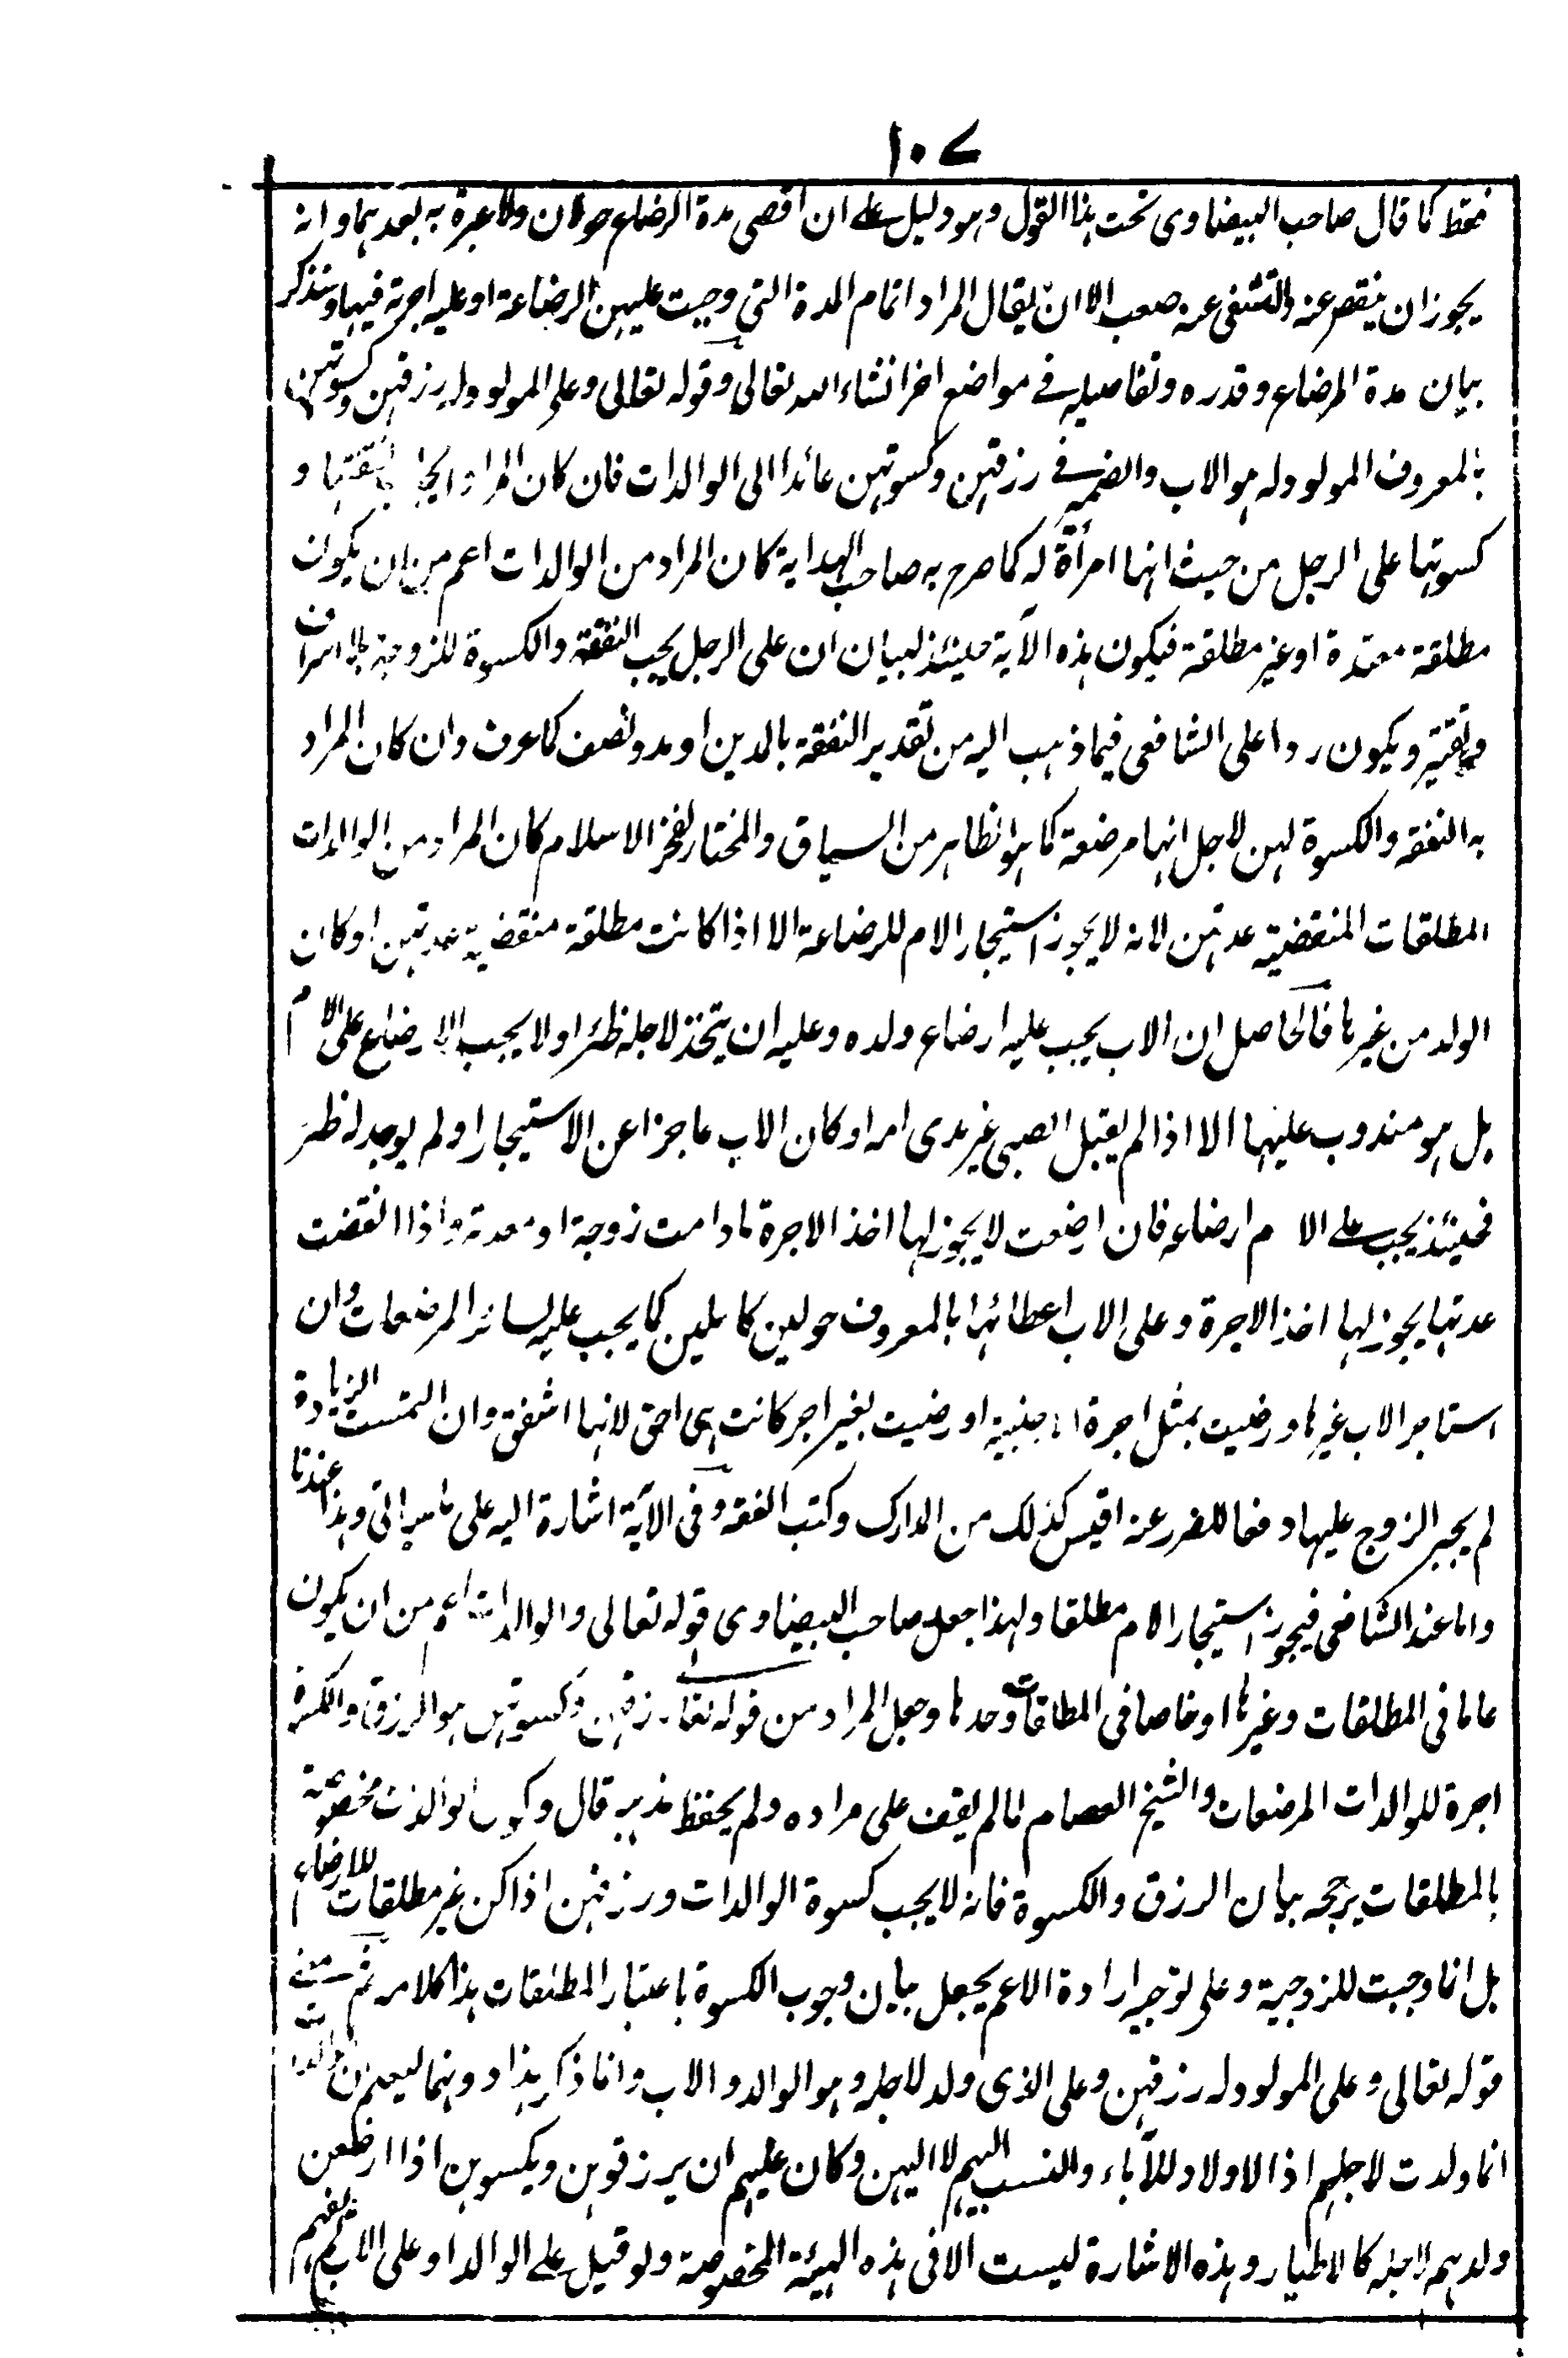 ١٠٧
فقط كما قال صاحب البيضاوى تحت هذا القول وهو دليل على ان اقصى مدة الرضاع حولان ولا عبرة به بعدهما وانه
يجوز ان ينقص عنه والتقصى عنه صعب الا ان يقال المراد اتمام المدة التى وجبت عليهن الرضاعة او عليه اجرته فيها وسنذكر
بيان مدة الرضاع وقدره وتفاصيله فى مواضع اخر انشاء الله تعالى وقوله تعالى وعلى المولود له رزقهن وكسوتهن
بالمعروف المولود له هو الاب والضمير فى رزقهن وكسوتهن عائد الى الوالدات فان كان المراد ايجاب نفقتها و
كسوتها على الرجل من حيث انها امرأة له كما صرح به صاحب الهداية كان المراد من الوالدات اعم من ان يكون
مطلقة معتدة او غير مطلقة فيكون هذه الآية حينئذ لبيان ان على الرجل يجب النفقة والكسوة للزوجة بلا اسراف
وتقتير ويكون ردا على الشافعى فيما ذهب اليه من تقدير النفقة بالمدين او مد ونصف كما عرف وان كان المراد
به النفقه والكسوة لهن لاجل انها مرضعة كما هو الظاهر من السياق والمختار لفخر الاسلام كان المراد من الوالدات
المطلقات المنقضية عدتهن لانه لا يجوز استيجار الام للرضاعة الا اذا كانت مطلقة منقضية عدتهن او كان
الولد من غيرها فالحاصل ان الاب يجب عليه ارضاع ولده وعليه ان يتخذ لاجله ظئرا ولا يجب الارضاع على الام
بل هو مندوب عليها الا اذا لم يقبل الصبى غير ثدى امه او كان الاب عاجزا عن الاستيجار او لم يوجد له ظئر
فحينئذ يجب على الام ارضاعه فان ارضعت لا يجوز لها اخذ الاجرة ما دامت زوجة او معتدة واذا انقضت
عدتها يجوز لها اخذ الاجرة وعلى الاب اعطائها بالمعروف حولين كاملين كما يجب عليه لسائر المرضعات وان
استاجر الاب غيرها ورضيت بمثل اجرة الاجنبية او رضيت بغير اجر كانت هى احق لانها اشفق وان التمست الزيادة
لم يجبر الزوج عليها دفعا للضرر عنه اقتبس كذلك من المدارك وكتب الفقه وفى الآية اشارة اليه على ما سياتى وهذا عندنا
واما عند الشافعى فيجوز استيجار الام مطلقا ولهذا جعل صاحب البيضاوى قوله تعالى والوالدات اعم من ان يكون
عاما فى المطلقات وغيرها او خاصا فى المطلقات وحدها وجعل المراد من قوله تعا رزقهن وكسوتهن هو الرزق والكسوة
اجرة للوالدات المرضعات والشيخ العصام لما لم يقف على مراده ولم يحفظ مذهبه قال وكون الوالدات مخصوصة
بالمطلقات يرجحه بيان الرزق والكسوة فانه لا يجب كسوة الوالدات ورزقهن اذا كن غير مطلقات للارضاع
بل انما وجبت للزوجية وعلى توجيه ارادة الاعم يجعل بيان وجوب الكسوة باعتبار المطلقات هذا كلامه ثم معنى
قوله تعالى وعلى المولود له رزقهن وعلى الذى ولد لاجله وهو الوالد والاب وانما ذكر بهذا دونهما ليعلم ان الوالدات
انما ولدت لاجلهم اذ الاولاد للآباء والنسب اليهم لا اليهن وكان عليهم ان يرزقوهن ويكسوهن اذا ارضعن
ولدهم لاجله كالاظيار وهذه الاشارة ليست الا فى هذه الهيئة المخصوصة ولو قيل على الوالد او على الاب لم يفهم